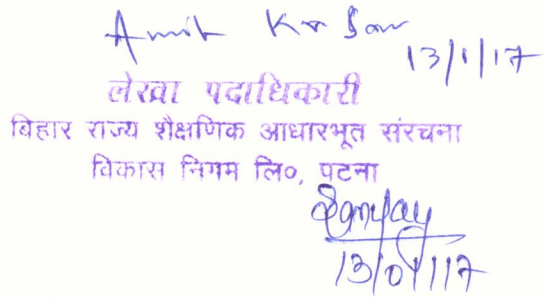 Amit Kr Sav
13/1/17
लेखा पदाधिकारी
बिहार राज्य शैक्षणिक आधारभूत संरचना
विकास निगम लि०, पटना
13/01/17